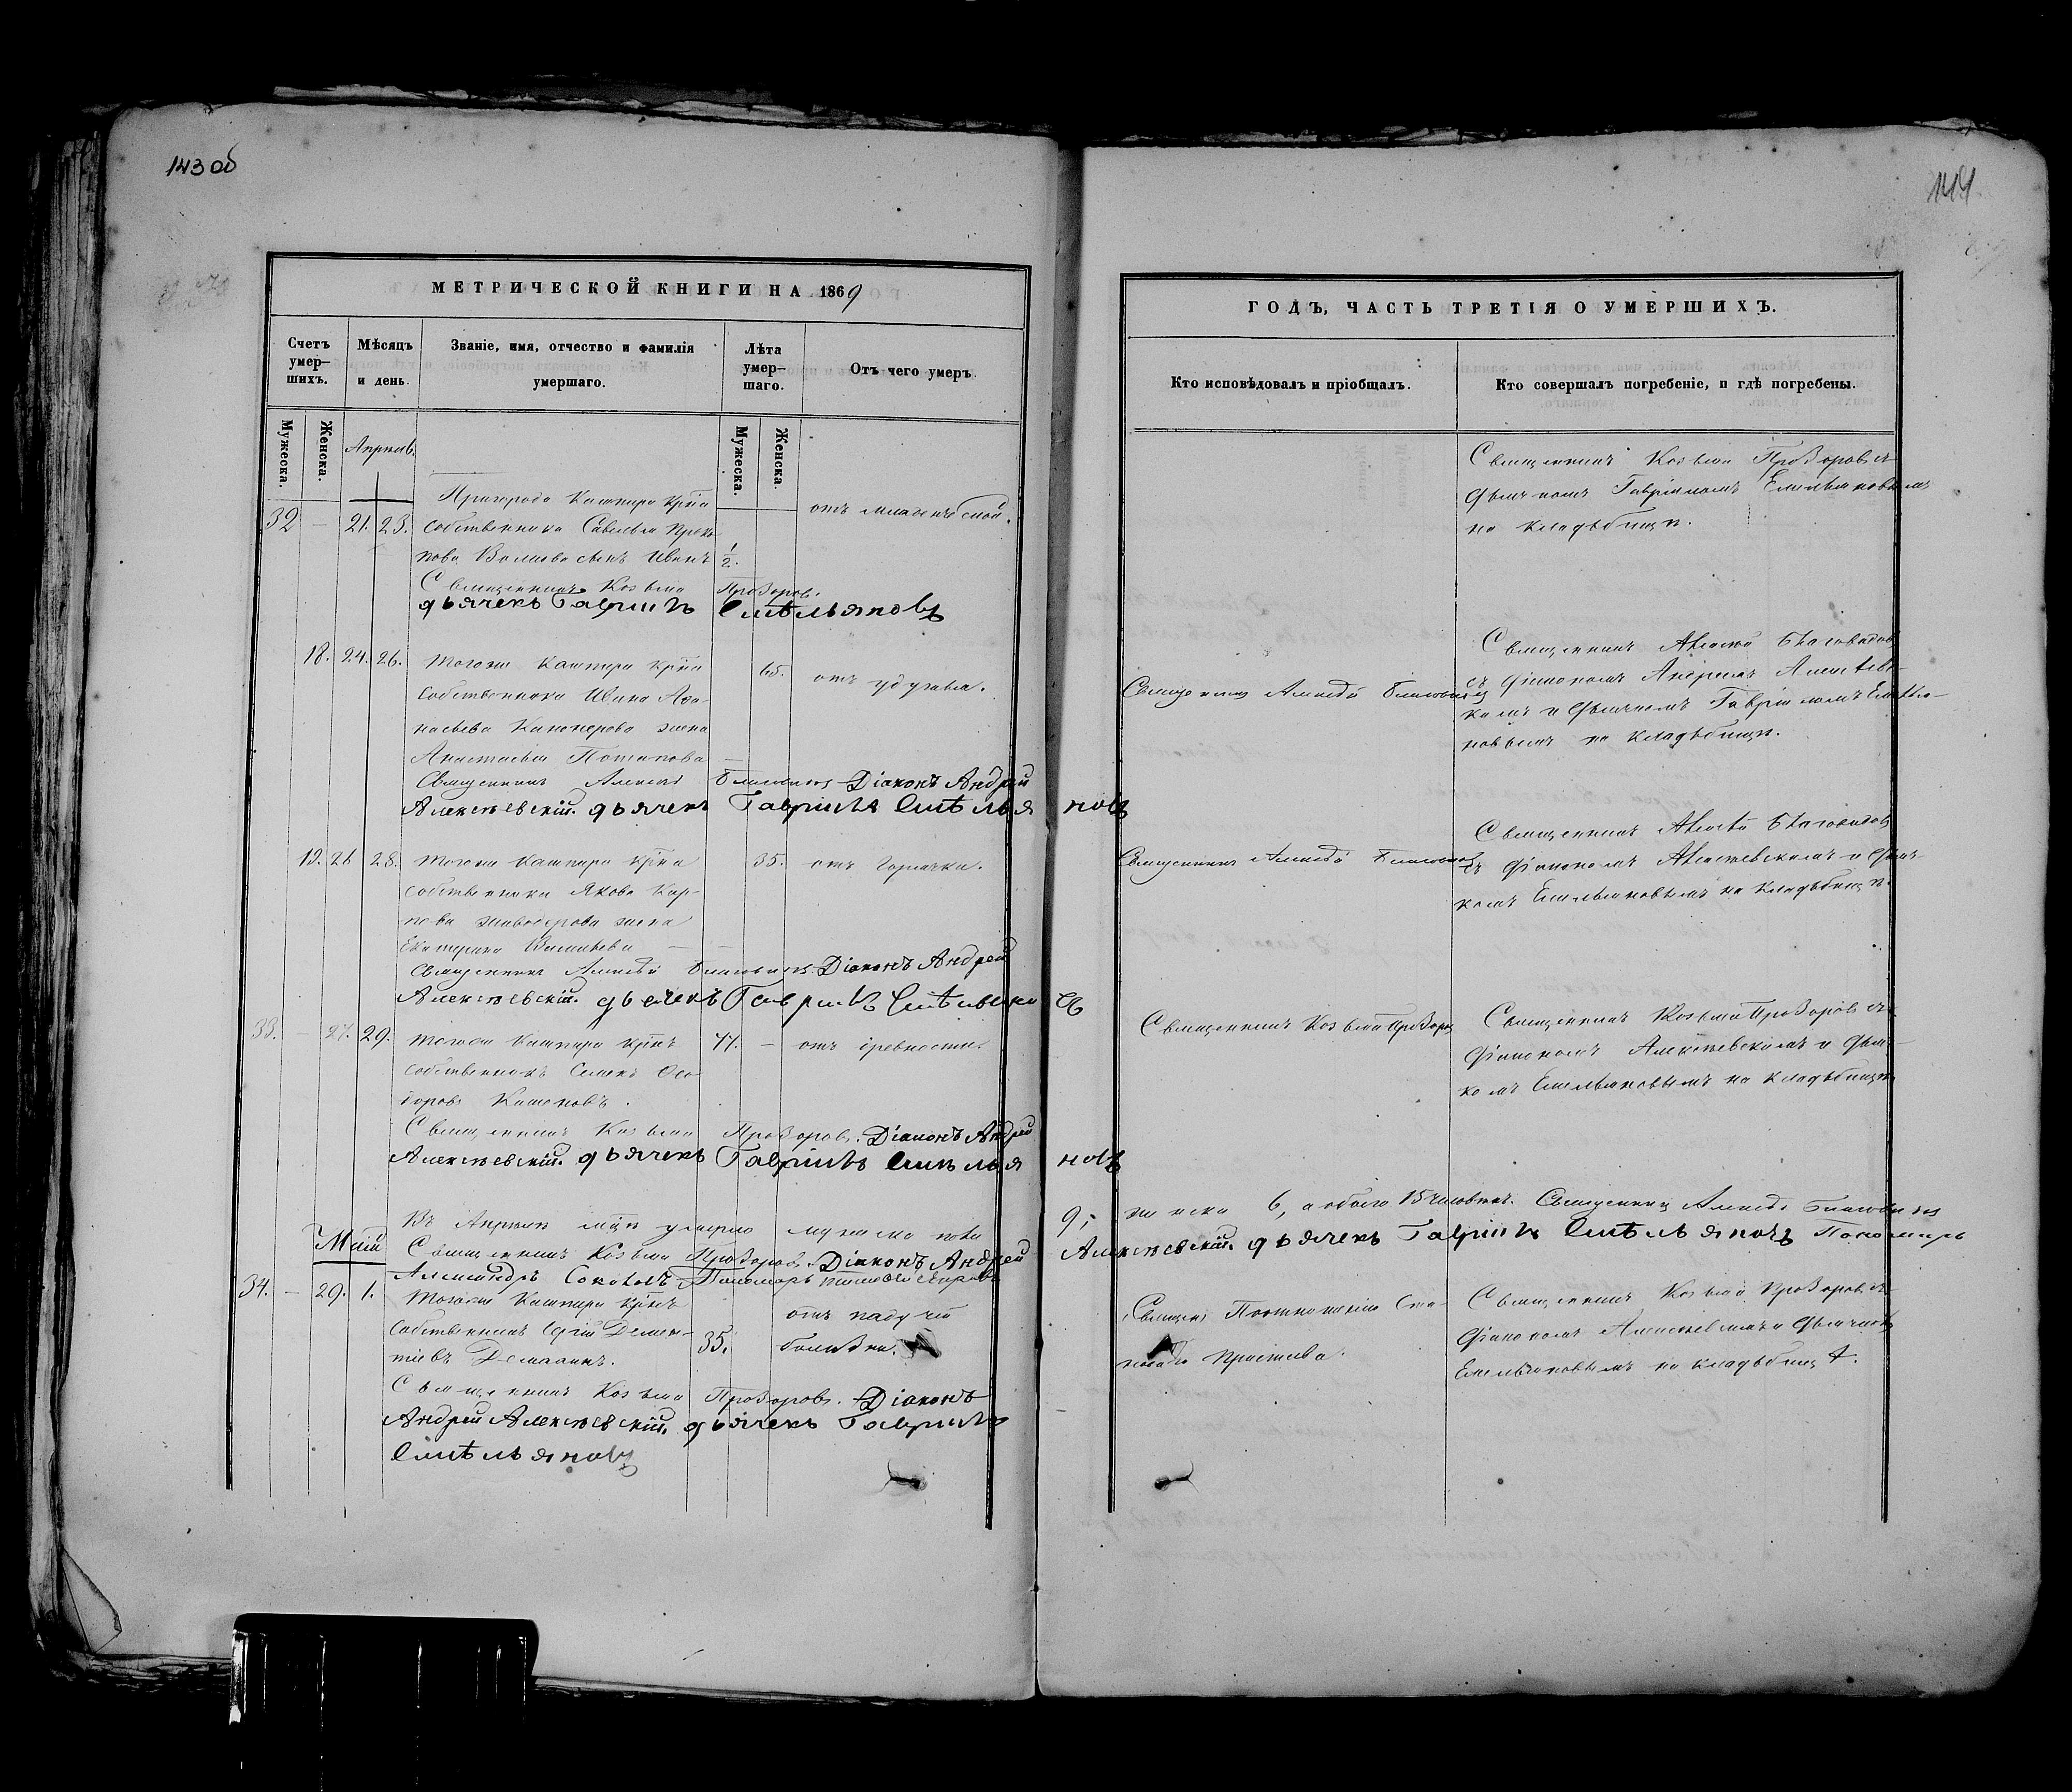 143 об
144
МЕТРИЧЕСКОЙ КНИГИ НА 1869
Счетъ умер-шихъ.
Мѣсяцъ и день.
Званіе, имя, отчество и фамилія умершаго.
Лѣта умер-шаго.
Отъ чего умеръ.
Мужеска.
Женска.
Апрѣль.
Мужеска.
Женска.
Пригорода Кашпира крѣна
32 — 21. 23. собственника Савелья Проко-
пова сынъ Иванъ ½.
отъ младенческой.
Священникъ Козьма Прозоровъ.
дьячекъ Гавріилъ Емѣльяновъ
18. 24. 26. Тогоже Кашпира крѣна 65. отъ удушья.
собственника Ивана Аѳа-
насьева Канонерова жена
Анастасья Потапова —
Священникъ Алексѣй Благовидовъ Діаконъ Андрей
Алексѣевскій. дьячекъ Гавріилъ Емѣльяновъ
19. 26 28. Тогоже Кашпира крѣна 35. отъ горячки.
собственника Якова Кар-
пова Живодерова жена
Екатерина
Священникъ Алексѣй Благовидовъ Діаконъ Андрей
Алексѣевскій. дьячекъ Гавріилъ Емѣльяновъ
33. — 27. 29. Тогоже Кашпира крѣнъ 77. — отъ древности.
собственникъ Семенъ Ѳео-
доровъ
Священникъ Козьма Прозоровъ. Діаконъ Андрей
Алексѣевскій. дьячекъ Гавріилъ Емѣльяновъ
Въ Апрѣлѣ мцѣ умерло мужеска пола
Священникъ Козьма Прозоровъ. Діаконъ Андрей
Май
Александръ Соколовъ Пономарь
34. — 29. 1. Тогоже Кашпира крѣнъ
собственникъ Сергій Демен-
тіевъ 35.
отъ падучей
болѣзни.
Священникъ Козьма Прозоровъ. Діаконъ
Андрей Алексѣевскій. дьячекъ Гавріилъ
Емѣльяновъ
ГОДЪ, ЧАСТЬ ТРЕТІЯ О УМЕРШИХЪ.
Кто исповѣдовалъ и пріобщалъ.
Кто совершалъ погребеніе, и гдѣ погребены.
Священникъ Козьма Прозоровъ съ
дьячкомъ Гавріиломъ Емельяновымъ
на кладбищѣ.
Священникъ Алексѣй Благовидовъ
Священникъ Алексѣй Благовидовъ
съ діакономъ Андреемъ Алексѣевс-
кимъ и дьячкомъ Гавріиломъ Емелья-
новымъ на кладбищѣ.
Священникъ Алексѣй Благовидовъ
Священникъ Алексѣй Благовидовъ
съ діакономъ Алексѣевскимъ и дьяч-
комъ Емельяновымъ на кладбищѣ.
Священникъ Козьма Прозоровъ
Священникъ Козьма Прозоровъ съ
діакономъ Алексѣевскимъ и дьяч-
комъ Емельяновымъ на кладбищѣ
9; женска 6, а обоего 15 человѣкъ. Священникъ Алексѣй Благовидовъ
Алексѣевскій. дьячекъ Гавріилъ Емѣльяновъ Пономарь
Священникъ Козьма Прозоровъ съ
діакономъ Алексѣевскимъ и дьячкомъ
Емельяновымъ на кладбищѣ.